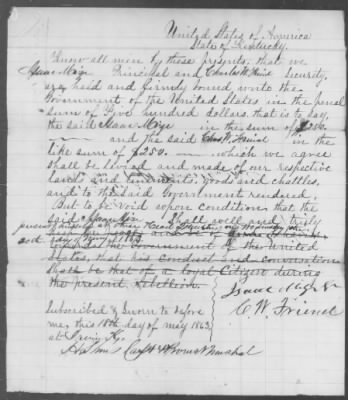 United States of America
State of Kentucky.
Know all men by these presents, that we
Isaac Principal and Charles W. Friend Security,
are held and firmly bound unto the
Government of the United States in the penal
sum of Five hundred dollars, that is to say,
the said Isaac in the sum of $250.
and the said Chas. W. Friend in the
like sum of $250. which we agree
shall be levied and made of our respective
lands and tenements, goods and chattles,
and to the said Government rendered,
But to be void upon conditions that the
said Isaac shall well and truly
himself at these Head on the
day of 1863
the Government of the United
States, that his conduct and conversation
shall be that of a loyal Citizen during
the present Rebellion.
Isaac
C. W. Friend
Subscribed & Sworn to before
me, this 18th day of May 1863.
at Irvine Ky.
Capt & Provost Marshal